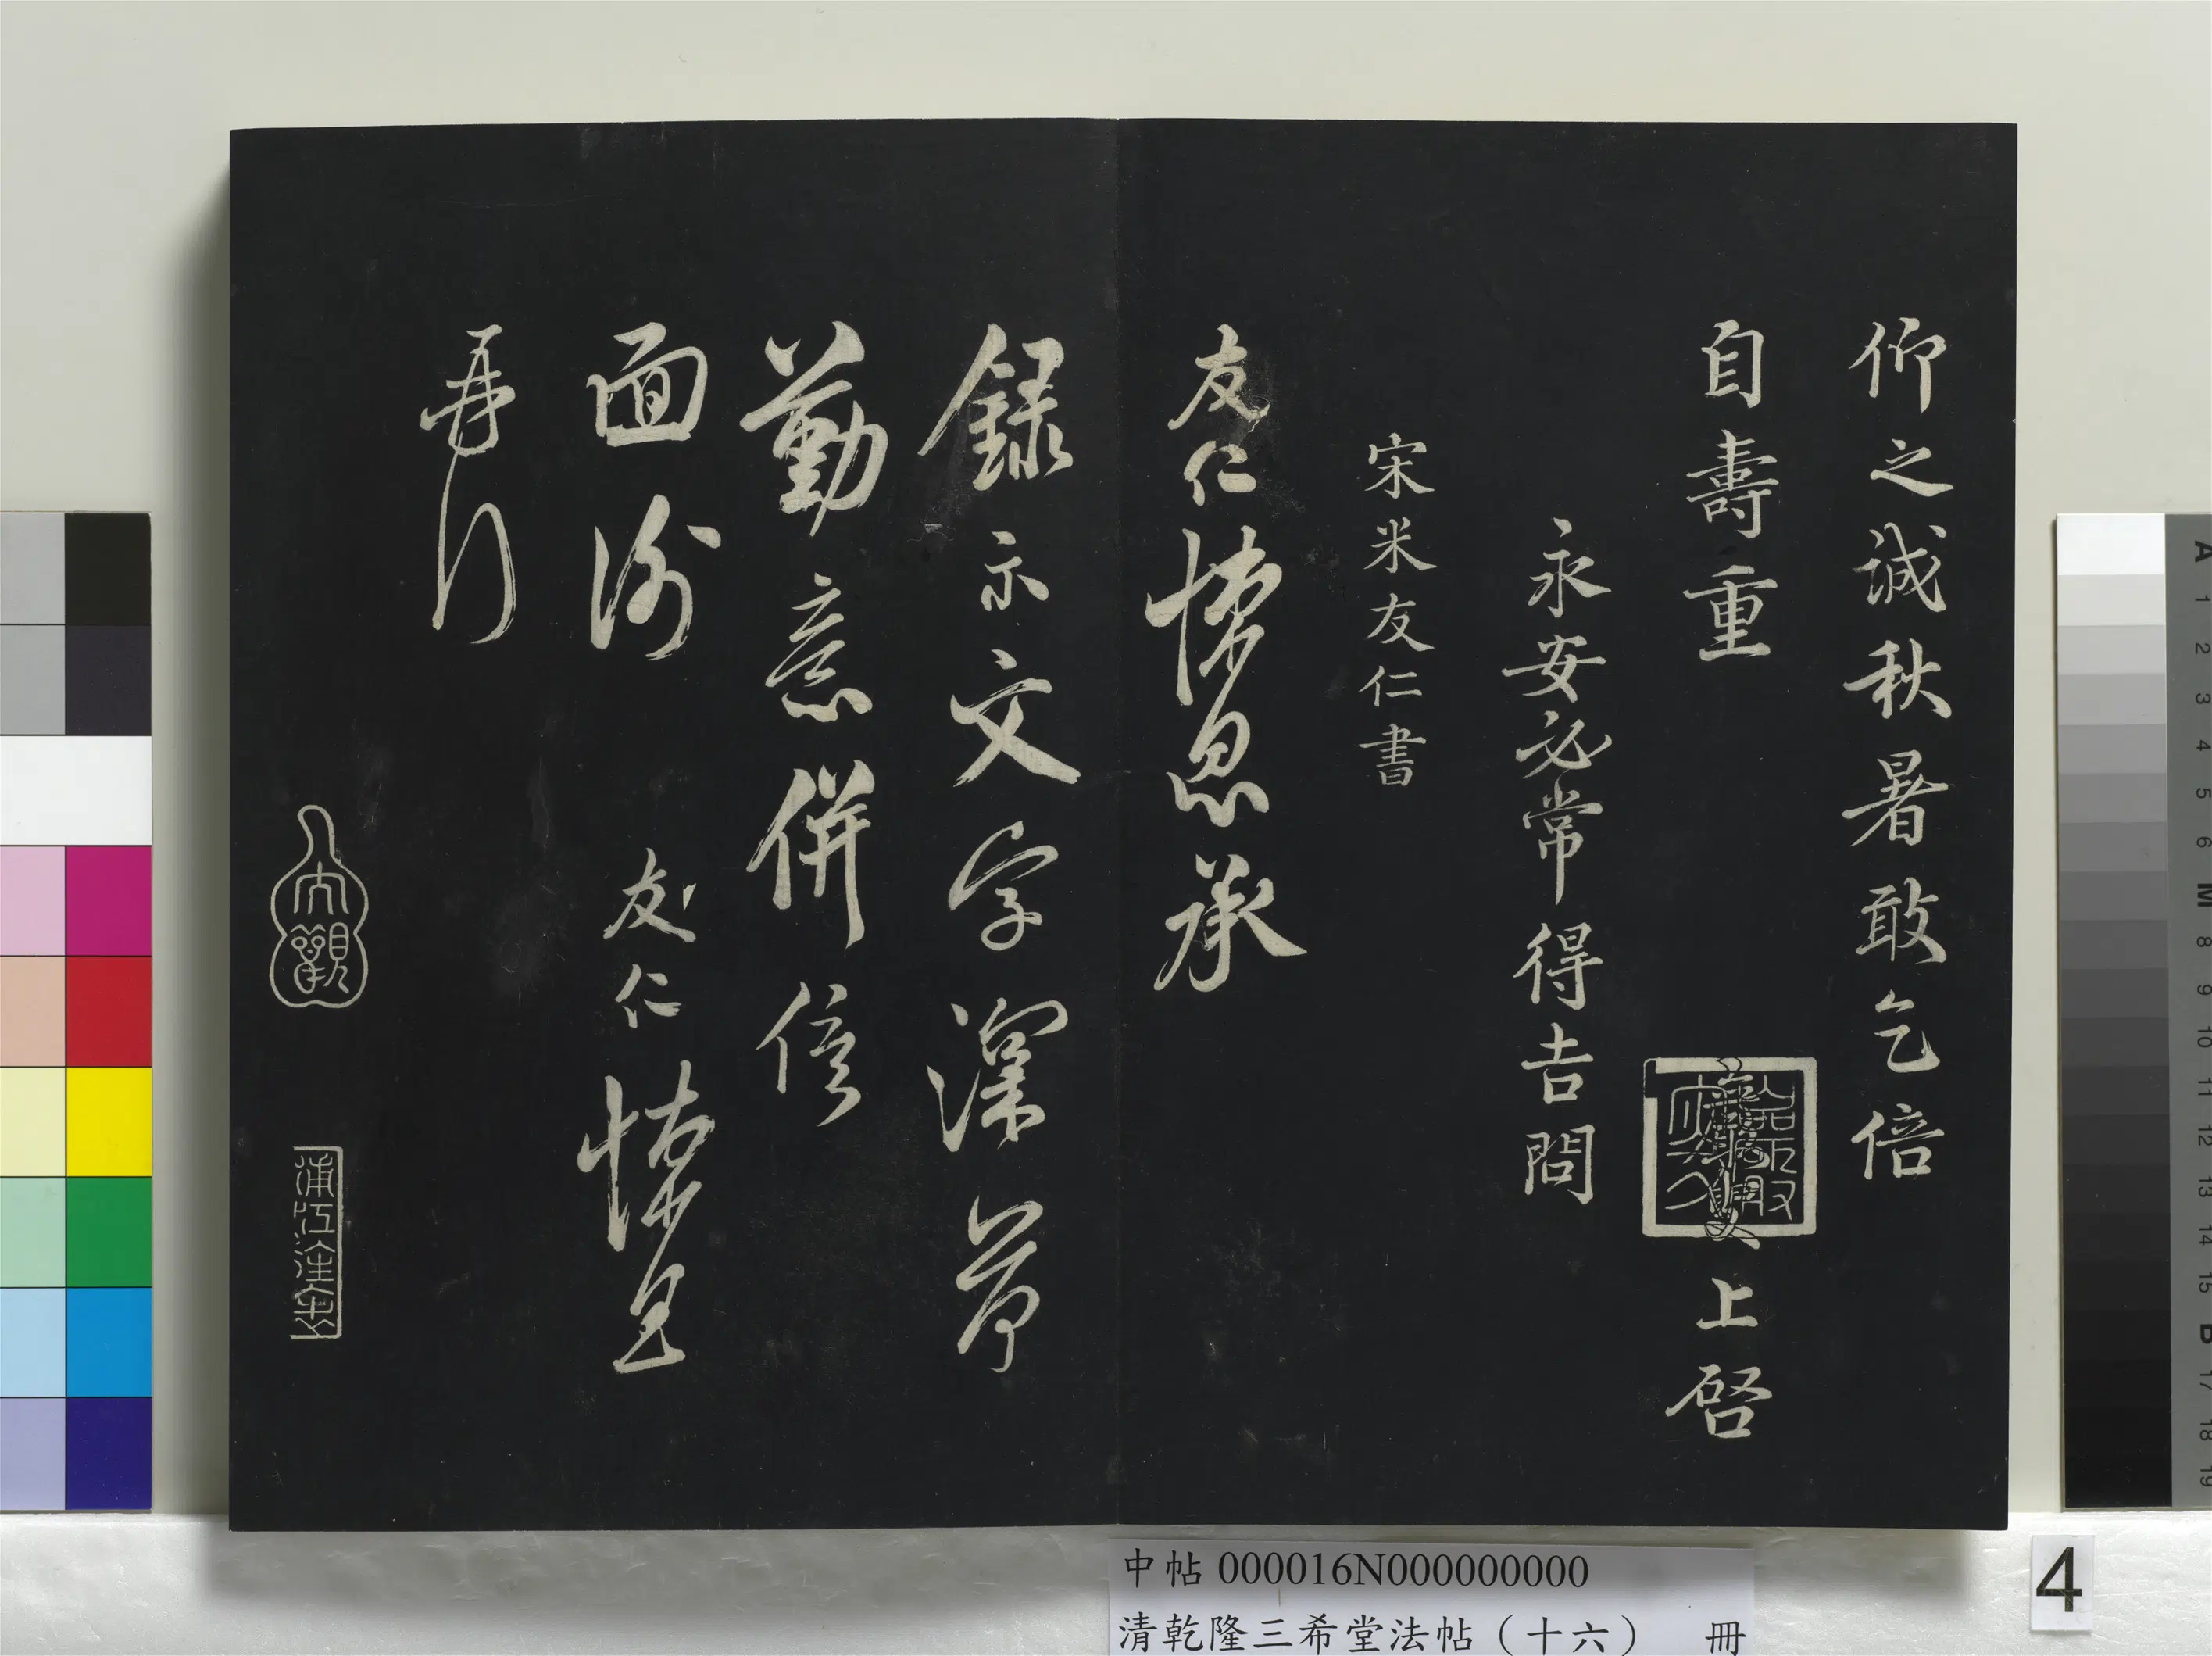 仰之誠秋暑敢乞倍
自壽重 上啓
永安必常得吉問
宋米友仁書
友仁悚息承
錄示文字深荷
勤意併俟
面謝 友仁悚息
再拜
中帖 000016N000000000
清乾隆三希堂法帖（十六） 冊
4
A 1 2 3 4 5 6 M 8 9 10 11 12 13 14 15 B 17 18 19